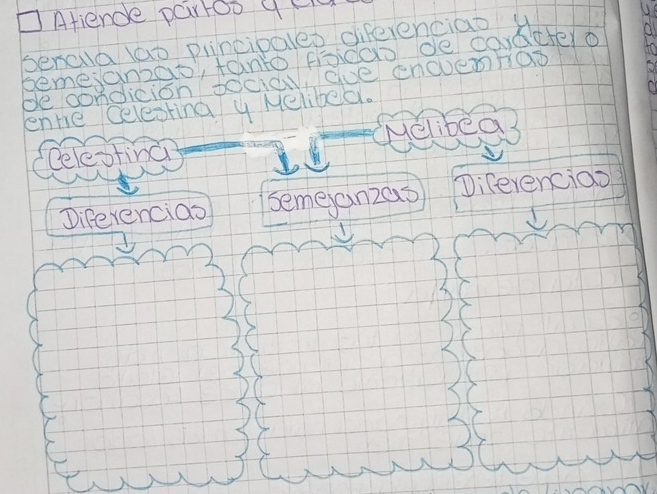 Atiende
sencilla las principales diferencias y
semejanzas, tanto físicas de carácter o
de condición social, que encuentras
entre Celestina y Melibea.
Celestina
Melibea
Diferencias
Semejanzas
Diferencias